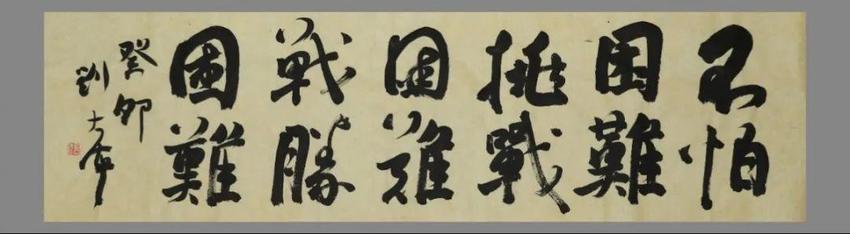 不怕
困難
挑戰
困難
戰勝
困難
癸卯
劉大為